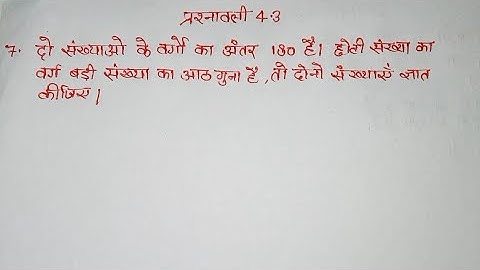 प्रश्नावली 4.3
7. दो संख्याओं के वर्गों का अंतर 180 है। छोटी संख्या का
वर्ग बड़ी संख्या का आठ गुना है, तो दोनों संख्याएँ ज्ञात
कीजिए।